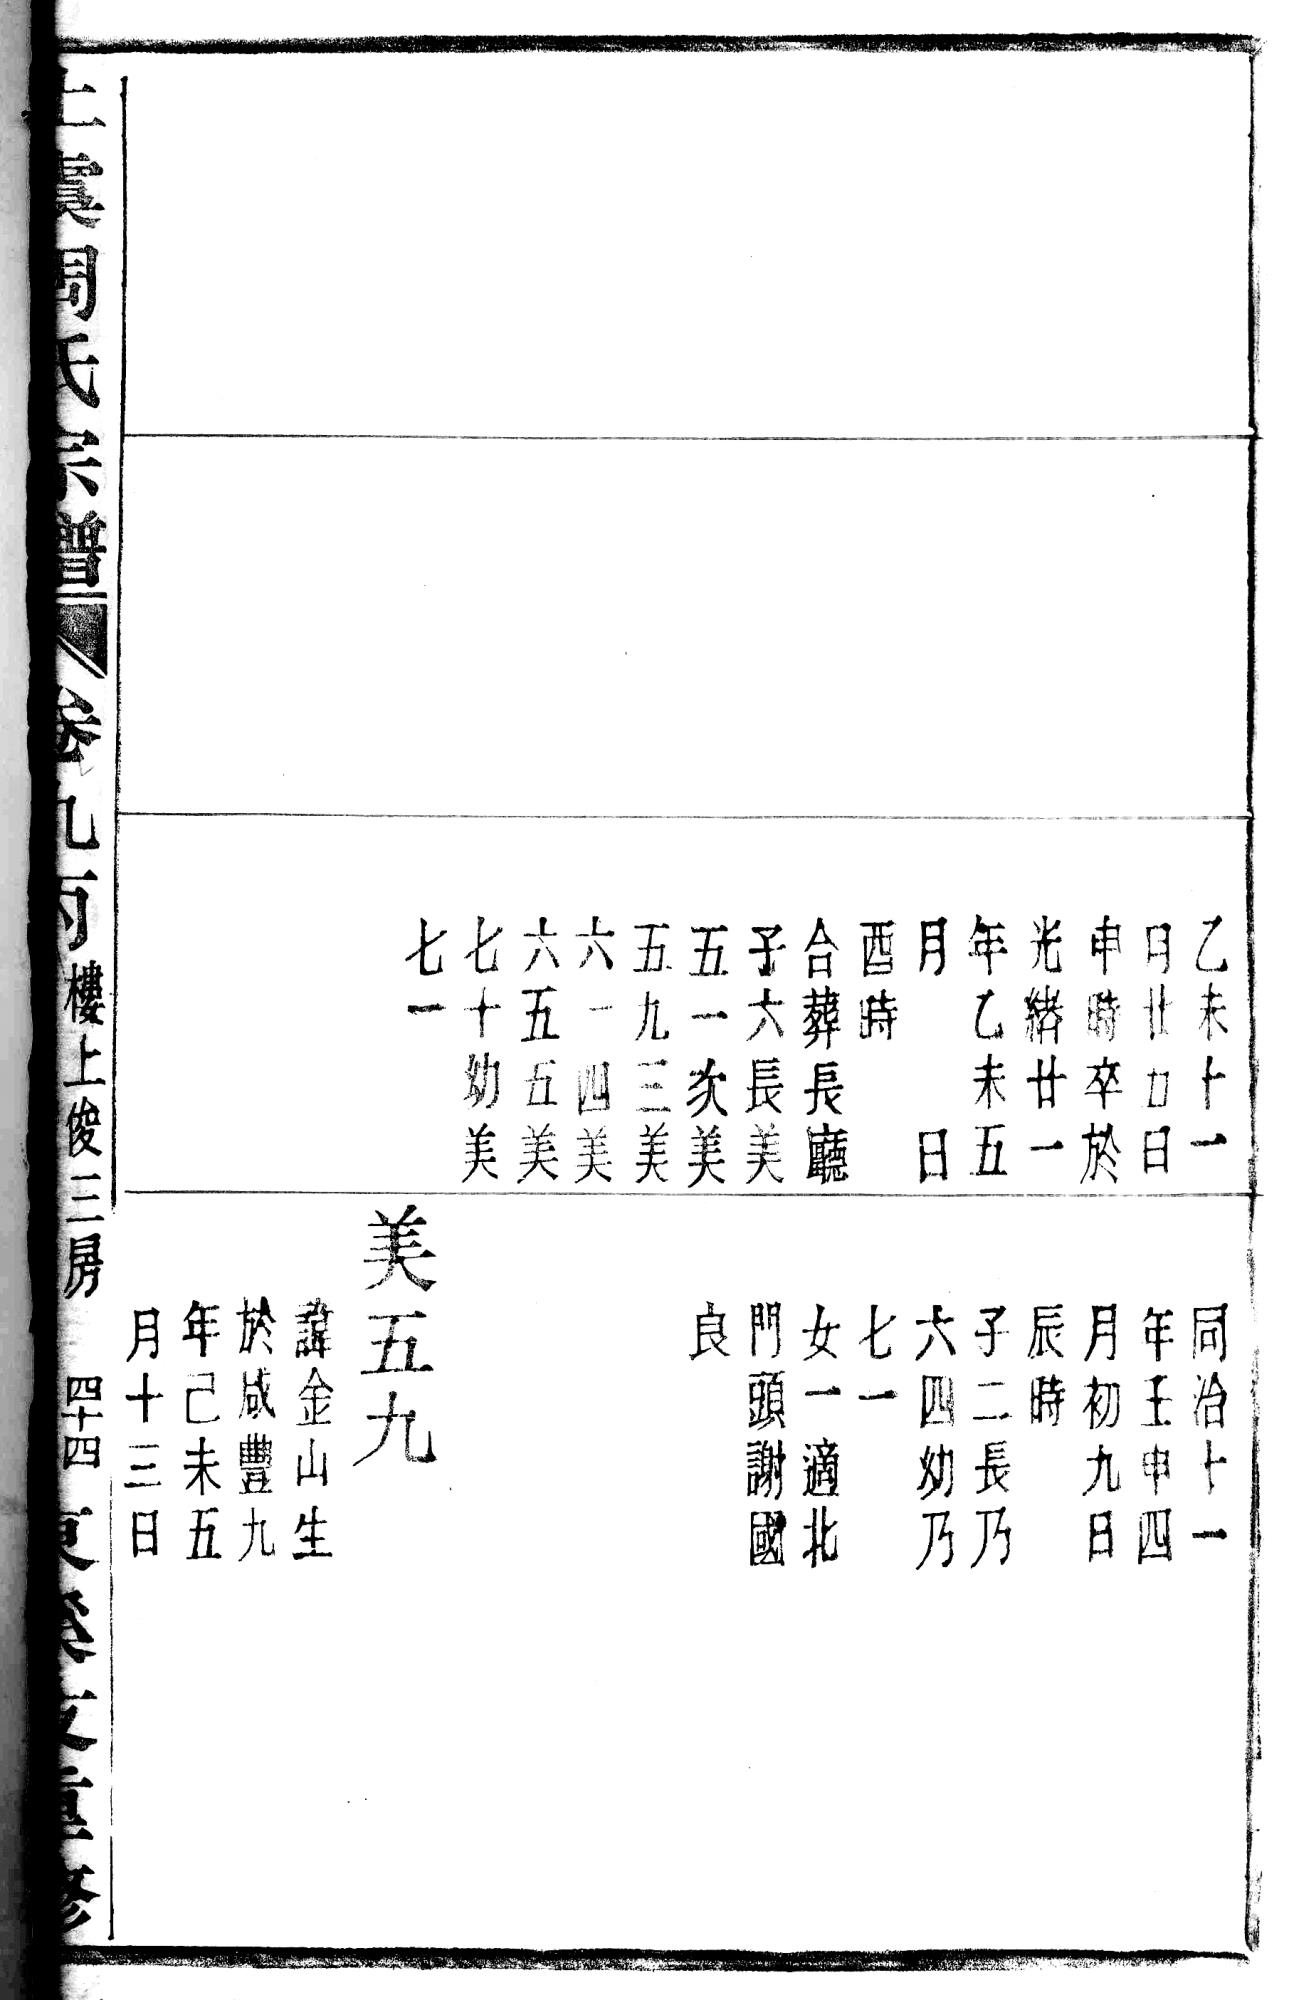 乙未十一
月廿九日
申時卒於
光緒廿一
年乙未五
月　日
酉時
合葬長廳
子六長美
五一次美
五九三美
六一四美
六五五美
七十幼美
七一
同治十一
年壬申四
月初九日
辰時
子二長乃
六四幼乃
七一
女一適北
門頭謝國
良
美五九
諱金山生
於咸豐九
年己未五
月十三日
上虞周氏宗譜
卷九丙
樓上俊三房
四十四
支重修